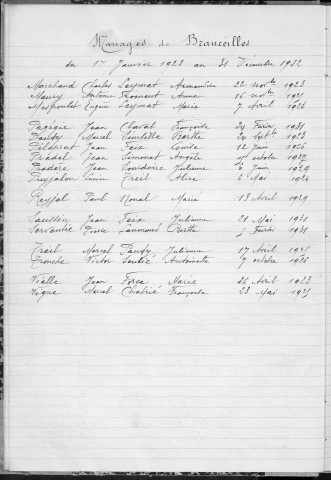 Mariages de Branceilles
du 1er Janvier 1923 au 31 Décembre 1932
Marchand Charles Leymat Armandine 22 novbre 1923
Maury Antoine Froment Anna 16 novbre 1925
Maspoulet Eugène Leymat Marie 7 Avril 1926
Pagégie Jean Chavat Françoise 24 Février 1931
Marcel Berthe 24 Septbre 1923
Jean Faix Louise 12 Juin 1926
Pradel Jean Simonat Angèle octobre 1927
Jean Julienne Juin 1929
Treil Alice 2 Mai 1924
Reyjal Paul Monat Maria 13 Avril 1929
Jean Faix Julienne 28 Mai 1930
Servantie Pierre Laumond Berthe Février 1931
Treil Marcel Paufy Julienne 17 Avril 1928
Tronche Victor Soulié Antoinette 7 octobre 1925
Vialle Jean Force Marie 26 Avril 1923
Vigne Marcel Chabrié Françoise 23 Mai 1925